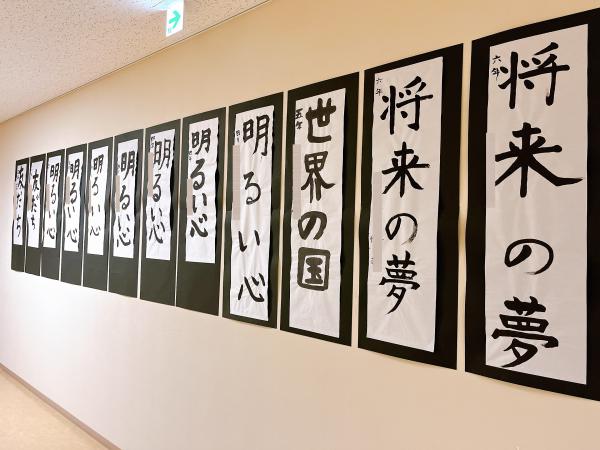 六年
将来の夢
六年
将来の夢
五年
世界の国
明るい心
明るい心
明るい心
明るい心
明るい心
明るい心
明るい心
友だち
友だち